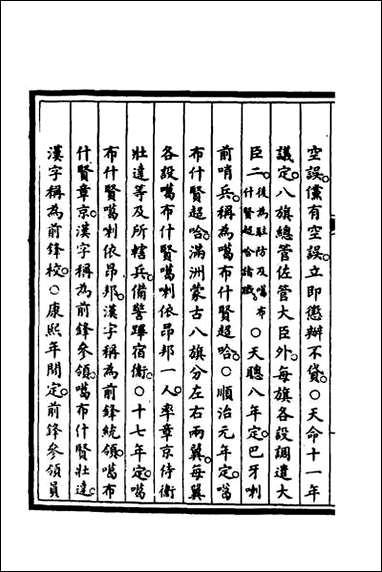 空誤。儻有空誤。立即懲辦不貸。○天命十一年
議定。八旗總管佐管大臣外。每旗各設調遣大
臣二。後為駐防及噶布什賢超哈諸職。○天聰八年定。巴牙喇
前哨兵。稱為噶布什賢超哈。○順治元年定。噶
布什賢超哈。滿洲蒙古八旗分左右兩翼。每翼
各設噶布什賢噶喇依昂邦一人。率章京侍衛
壯達等及所轄兵。備警蹕宿衛。○十七年定。噶
布什賢噶喇依昂邦。漢字稱為前鋒統領。噶布
什賢章京。漢字稱為前鋒參領。噶布什賢壯達。
漢字稱為前鋒校。○康熙年閒定。前鋒參領員